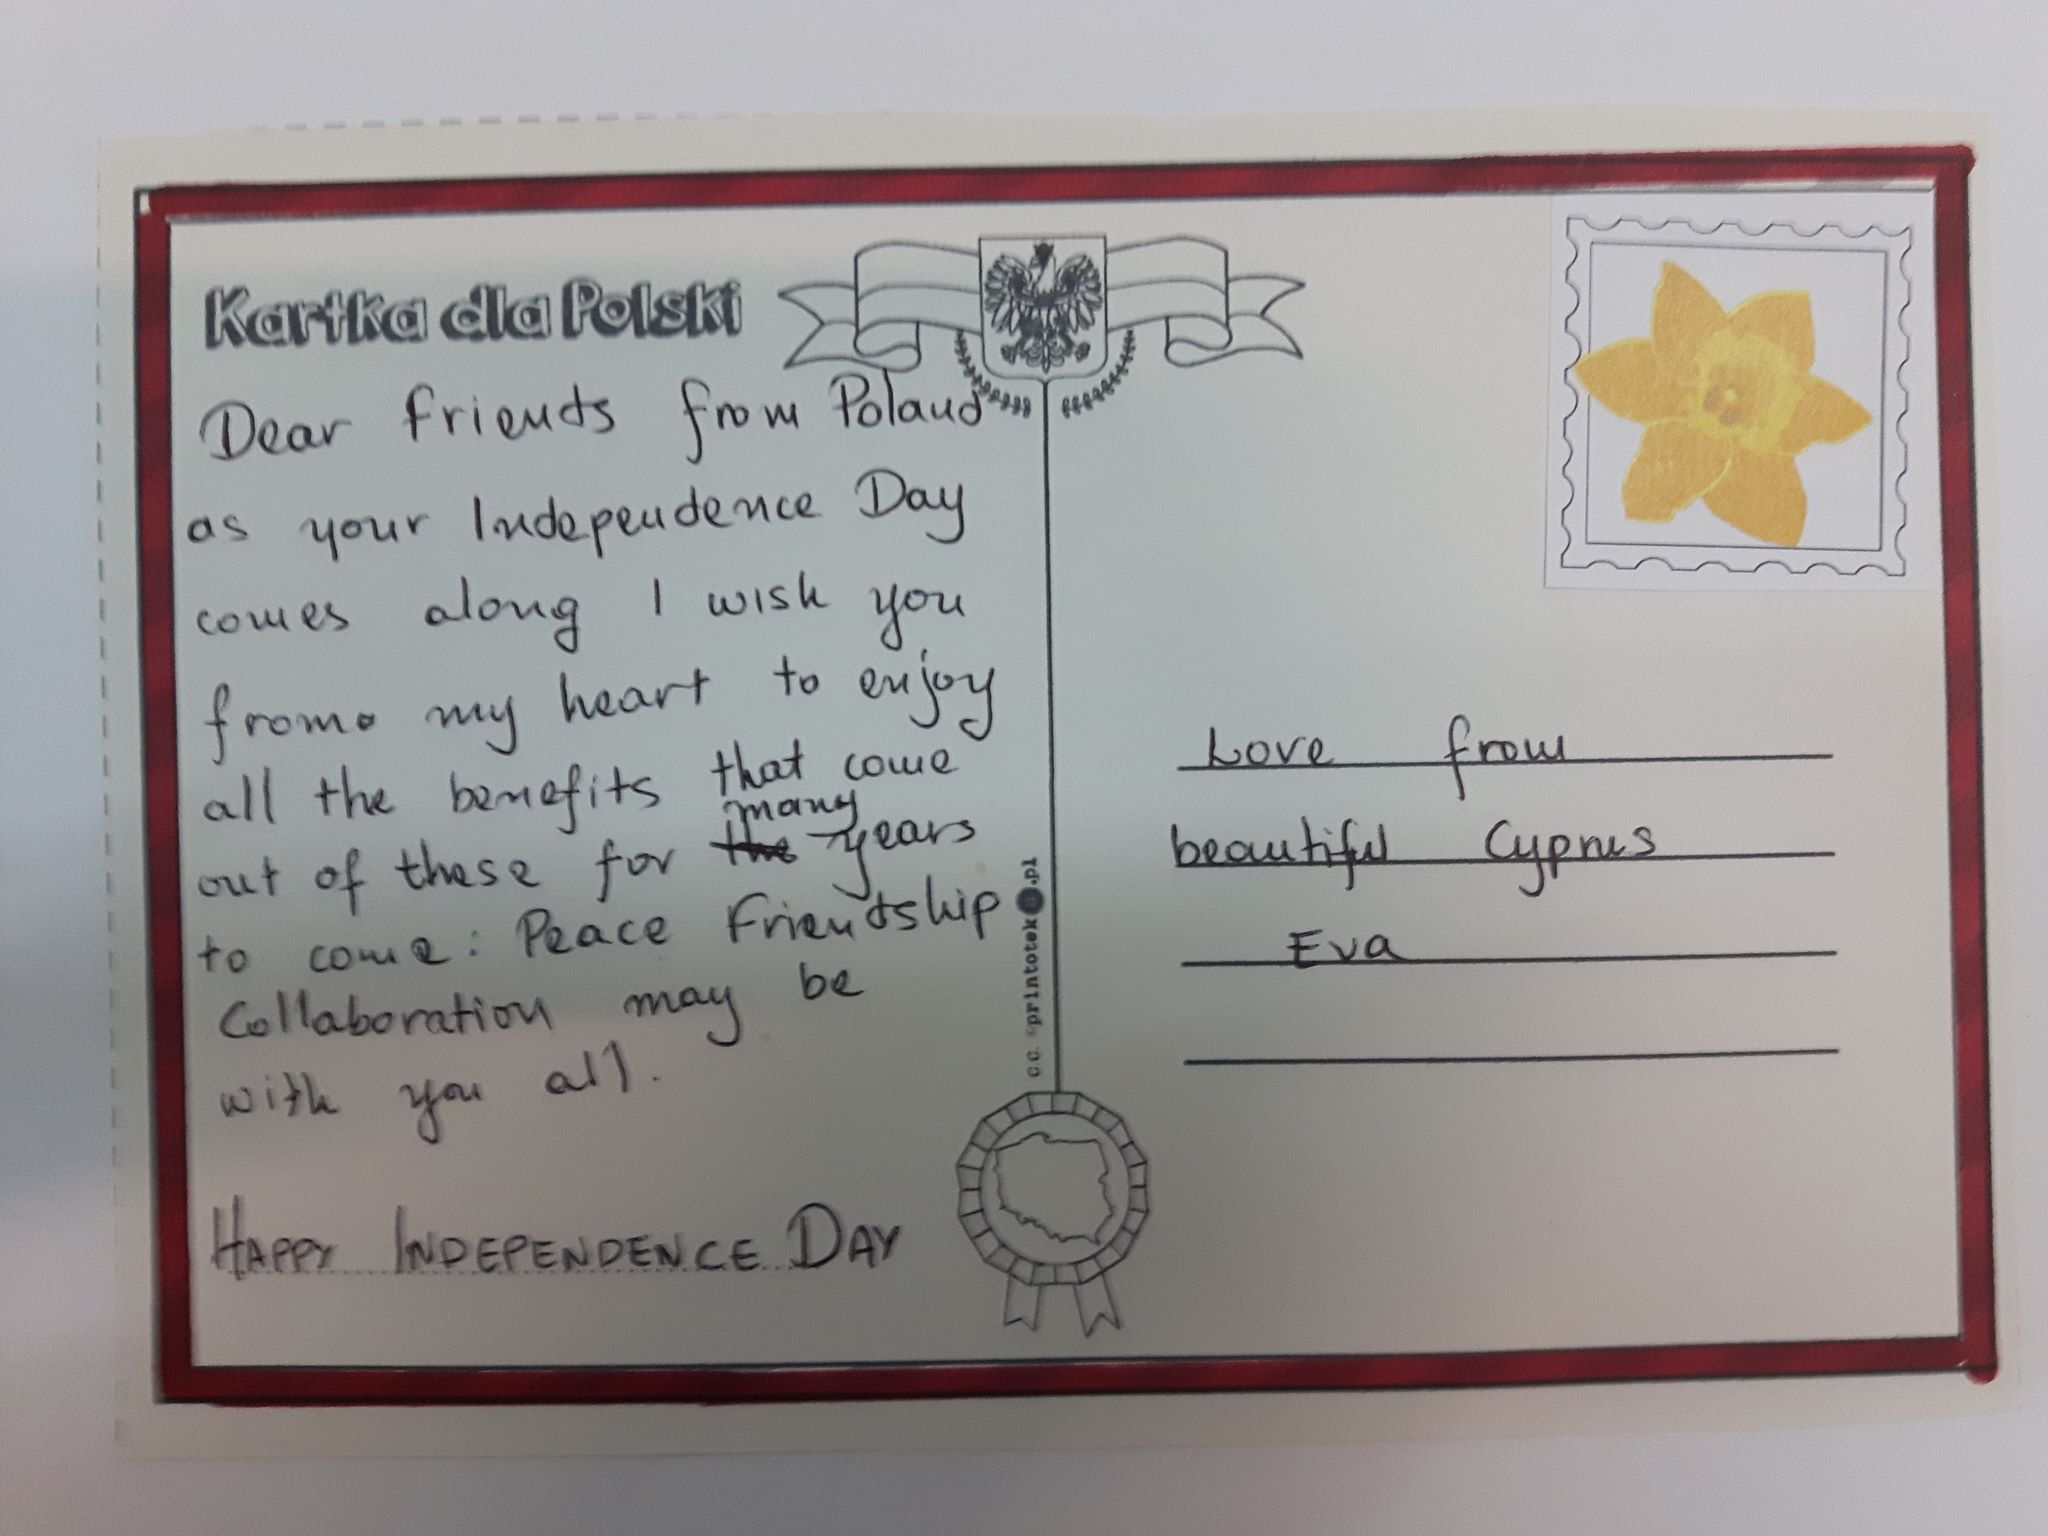 Kartka dla Polski
Dear Friends from Poland
as your Independence Day
comes along I wish you
from my heart to enjoy
all the benefits that come
out of these for the many years
to come: Peace Friendship
Collaboration may be
with you all.
HAPPY INDEPENDENCE DAY
c.c. printotek.pl
Love from
beautiful Cyprus
Eva